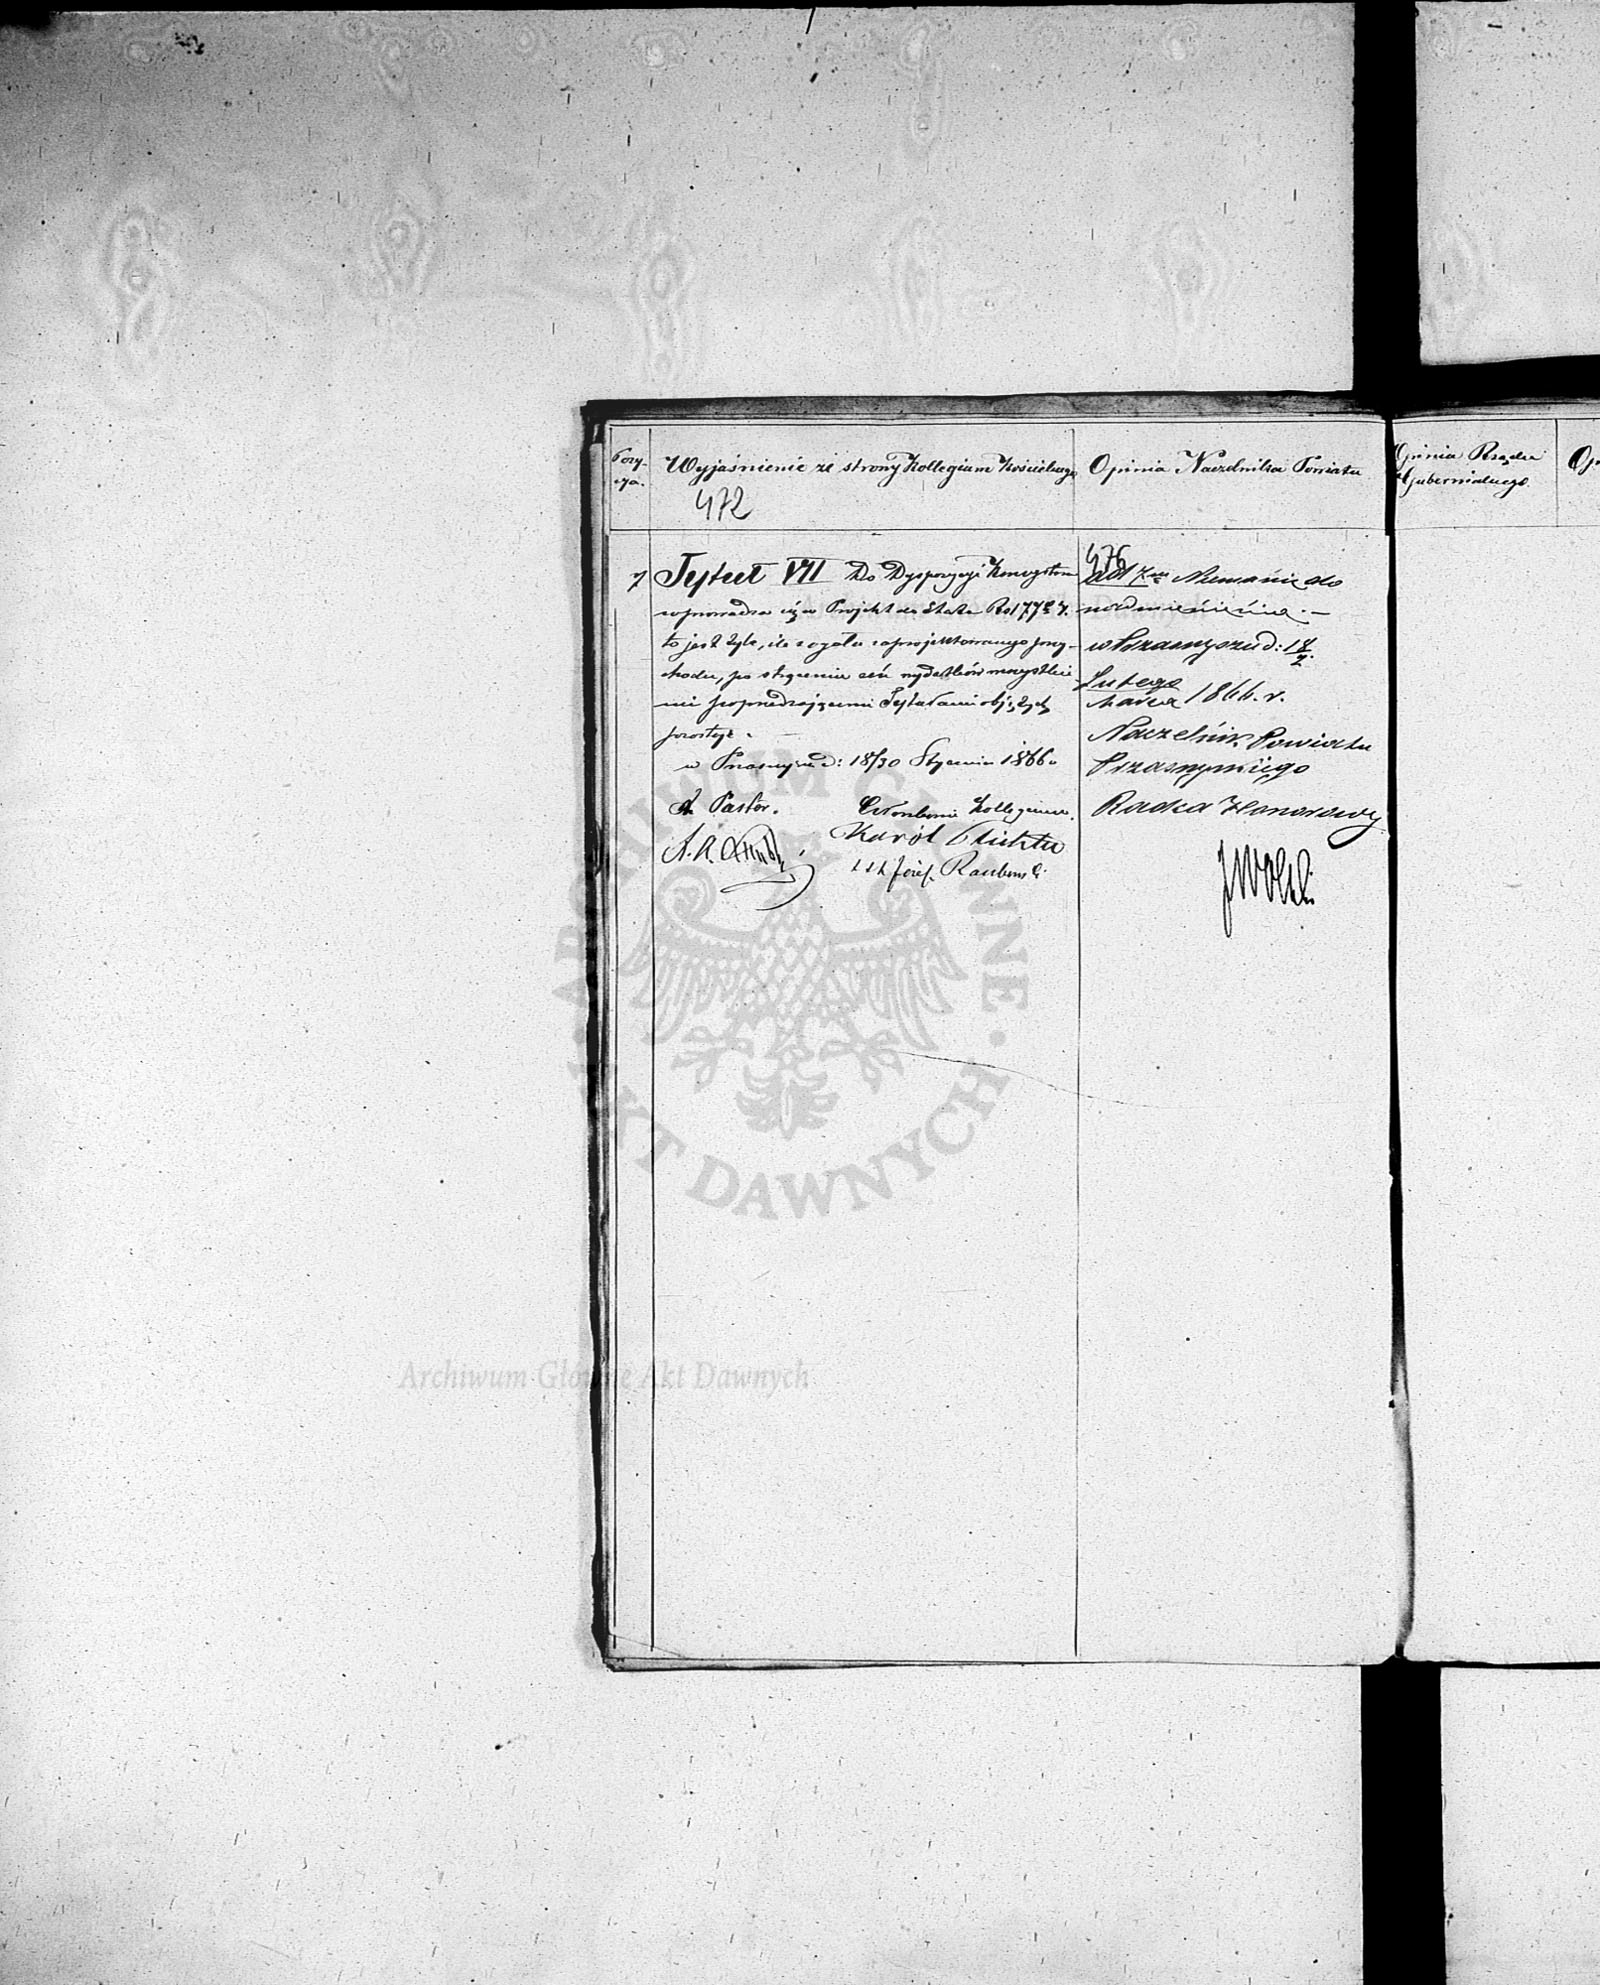 Pozy-
cya.
Wyjaśnienie ze strony Kollegium Kościelnego
472
Opinia Naczelnika Powiatu
Opinia Rządu
Gubernialnego
Op
7
Tytuł VII Do Dyspozycyi Konsystorza
wprowadza się w Projekt do Etatu Rs 177
to jest tyle, ile z ogółu zaprojektowanego przy-
chodu, po strąceniu zeń wydatków wszystkie-
mi poprzedzającemi Tytułami objętych
pozostaje.
w Przasnyszu d: 18/30 Stycznia 1866
Pastor.
Członkowie Kollegium.
Karól
Józef
476
ad 7m Niemam nic do
nadmienienia. —
w Przasnyszu d: 18
Lutego
2
Marca 1866. r.
Naczelnik Powiatu
Przasnyskiego
Radca Honorowy
JWolski
ARCHIWUM GŁÓWNE AKT DAWNYCH
Archiwum Główne Akt Dawnych